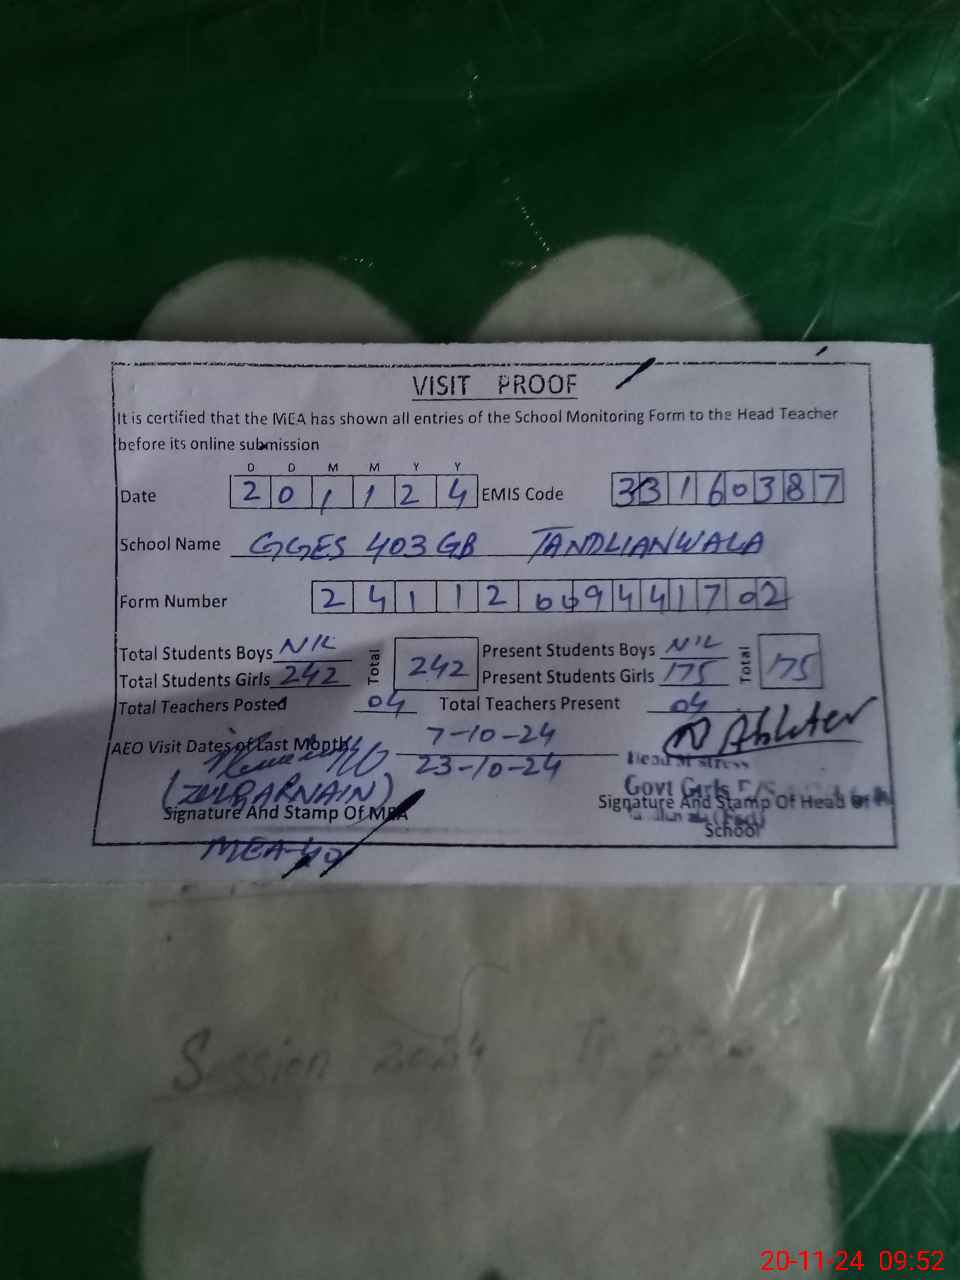 VISIT PROOF
It is certified that the MEA has shown all entries of the School Monitoring Form to the Head Teacher
before its online submission
D D M M Y Y
Date 2 0 1 1 2 4 EMIS Code 3 3 1 6 0 3 8 7
School Name GGES 403 GB TANDLIANWALA
Form Number 2 4 1 1 2 0 6 9 4 4 1 7 0 2
Total Students Boys NIL Total 242 Present Students Boys NIL Total 175
Total Students Girls 242 Present Students Girls 175
Total Teachers Posted 04 Total Teachers Present 04
AEO Visit Dates of Last Month 7-10-24
23-10-24
(ZULQARNAIN) Govt Girls
Signature And Stamp Of MEA Signature And Stamp Of Head
School
MEA-40
Session 2024 To
20-11-24 09:52